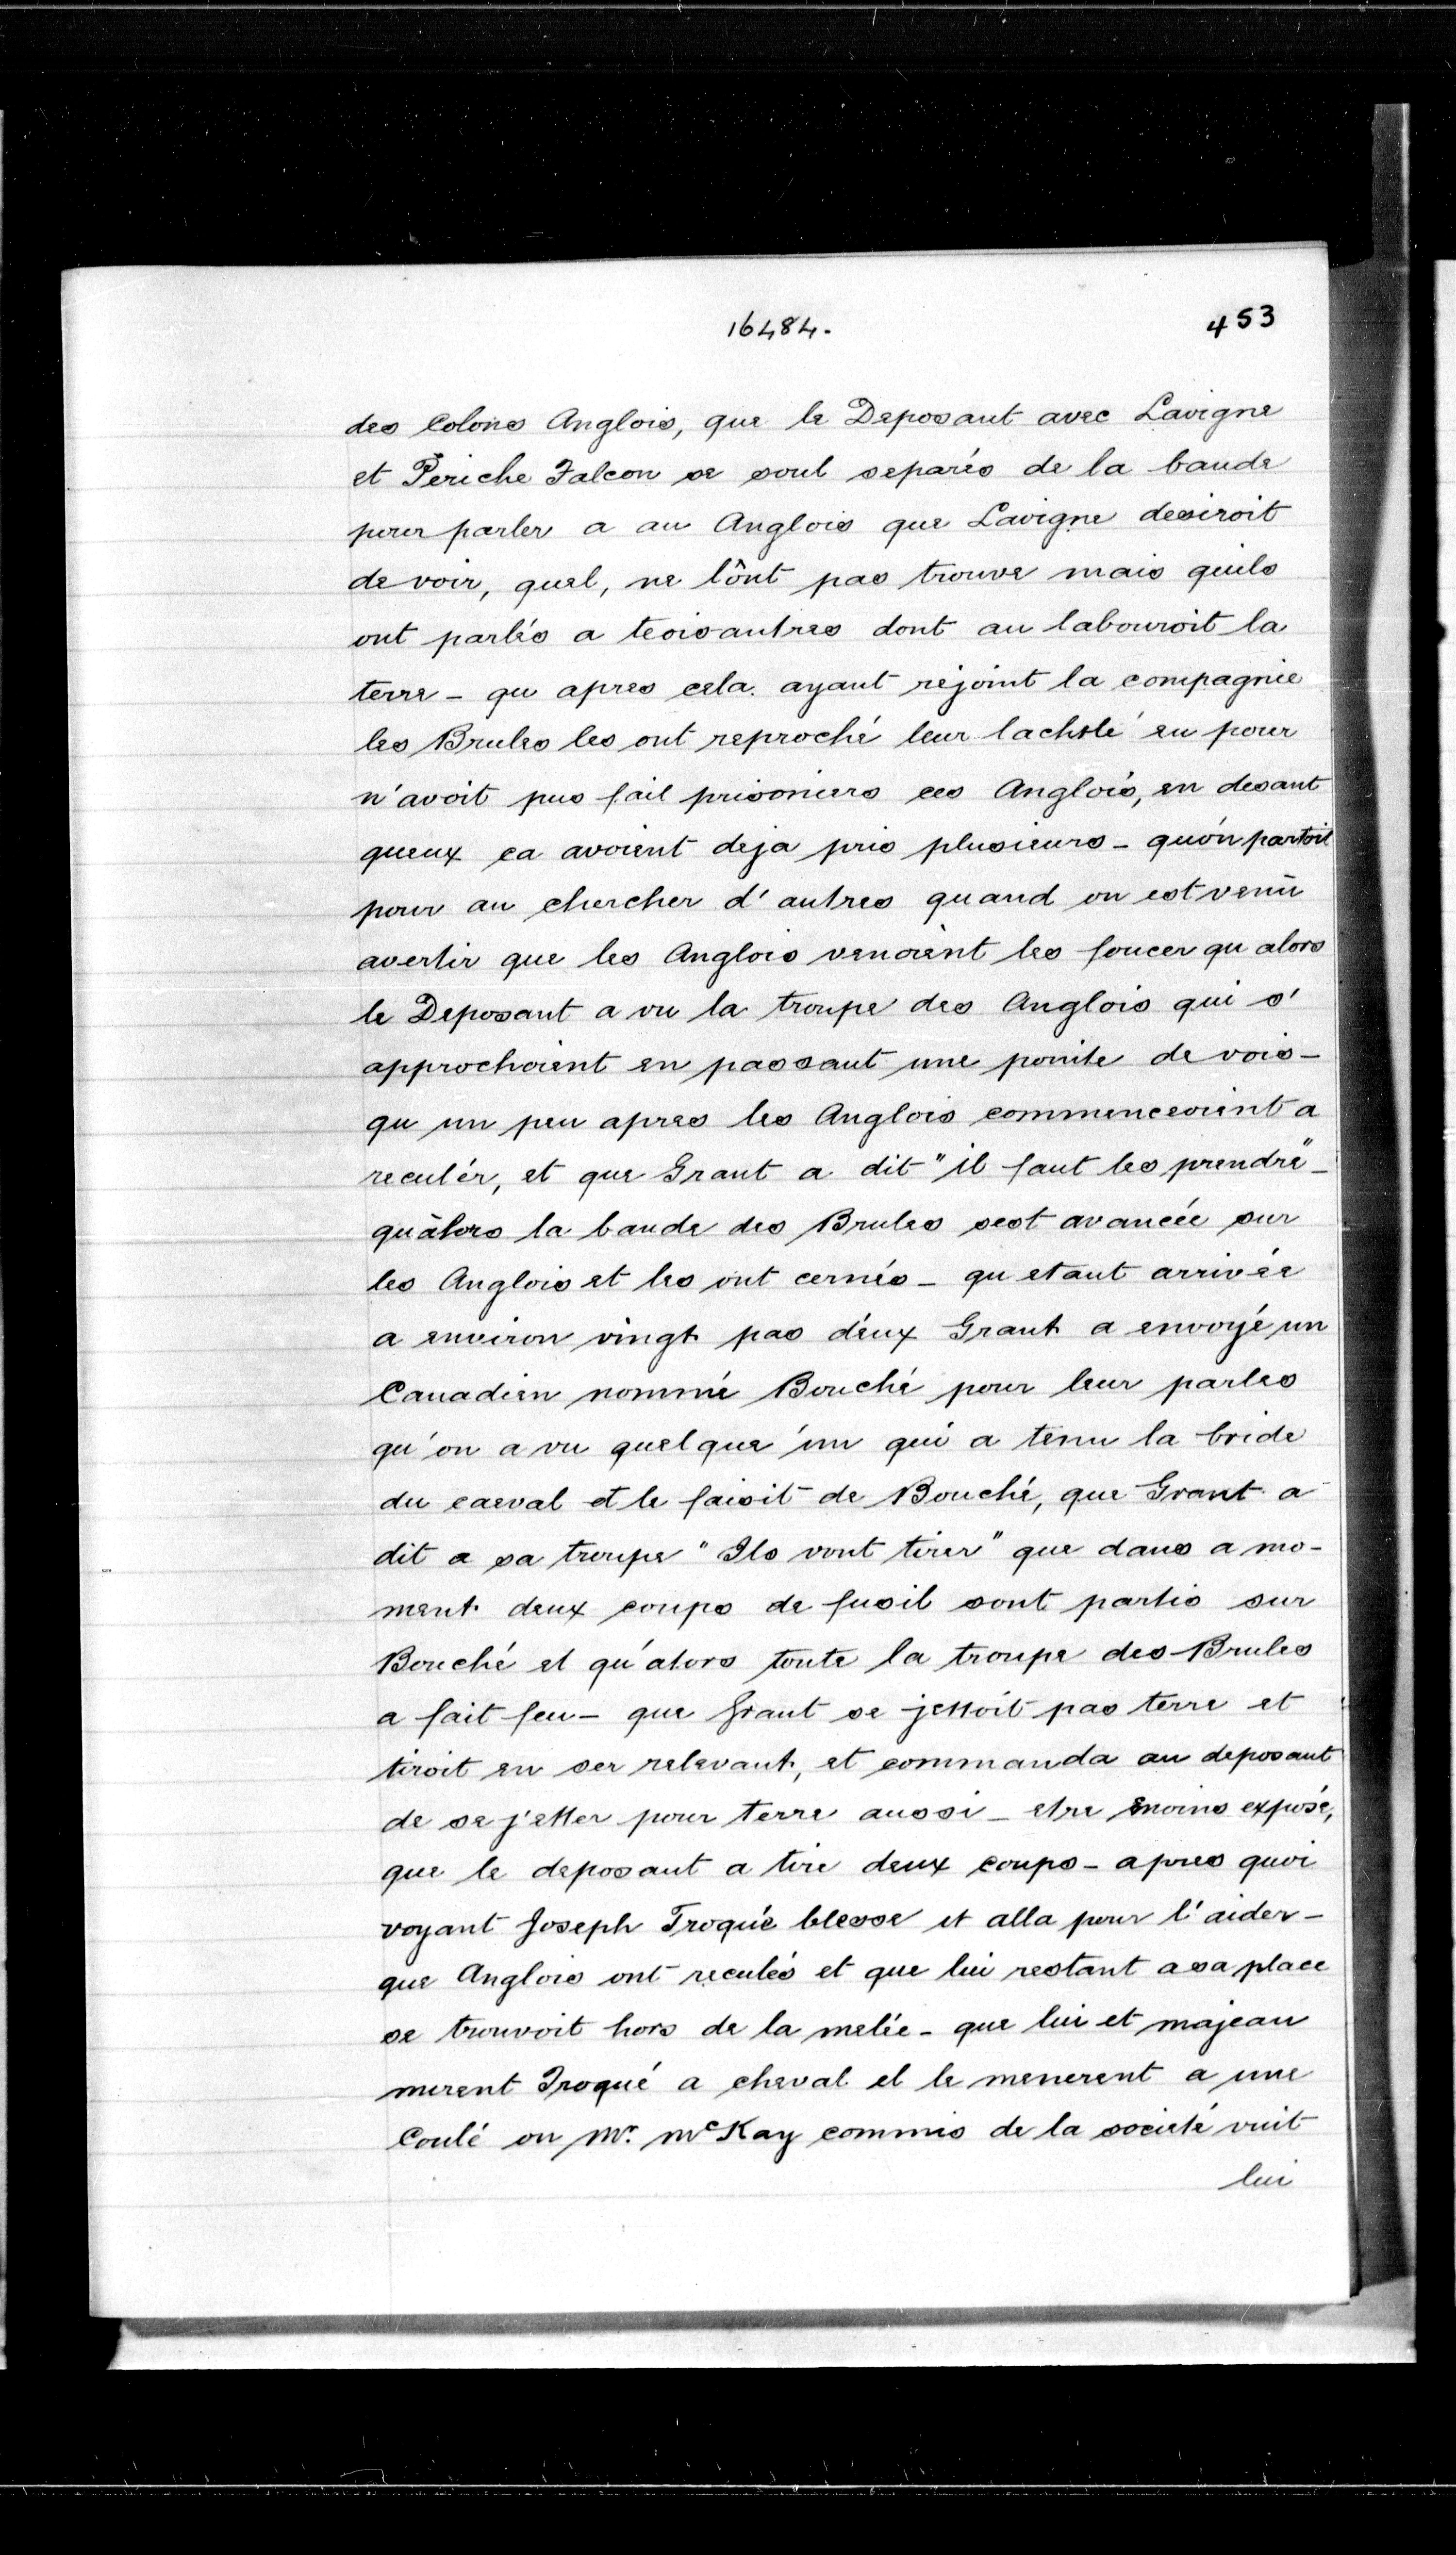 16484.
453
des Colons Anglois, que le Deposant avec Lavigne
et Periche Falcon se sont separés de la bande
pour parler a au Anglois que Lavigne desiroit
de voir, quel, ne lônt pas trouve mais quils
ont parlés a teois autres dont au labouroit la
terre - qu apres cela. ayant rejoint la compagnie
les Brules les ont reproché leur lachté en pour
n'avoit pus fait prisoniers ces Anglois, en desant
queux ea avoient deja pris plusieurs - quón partoit
pour au chercher d'autres quand on est venu
avertir que les Anglois venoient les foucer qu alors
le Deposant a vu la troupe des Anglois qui s'
approchoient en passant une pointe de vois -
qu un peu apres les Anglois commenceoient a
reculér, et que Grant a dit "il faut les prendre" -
quàlors la bande des Brules sest avancée sur
les Anglois et les ont cernés - qu etant arrivée
a environ vingt pas d'eux Grant a envoyé un
Canadien nommé Bouché pour leur parles
qu'on a vu quelque 'un qui a tenu la bride
du caeval et le faisit de Bouché, que Grant a
dit a sa troupe "Ils vont tirer" que dans a mo-
ment deux coups de fusil sont partis sur
Bouché et qu'alors toute la troupe des Brules
a fait feu - que Grant se jettoit pas terre et
tiroit en ser relevant, et commanda au deposant
de se j'etter pour terre aussi - etre moins exposé,
que le deposant a tire deux coups - apres quoi
voyant Joseph Troqué blesse et alla pour l'aider -
que Anglois ont reculés et que lui restant a sa place
se trouvoit hors de la melée - que lui et majeau
mirent Troqué a cheval et le menerent a une
Coulé ou Mr. McKay commis de la societé vuit
lui